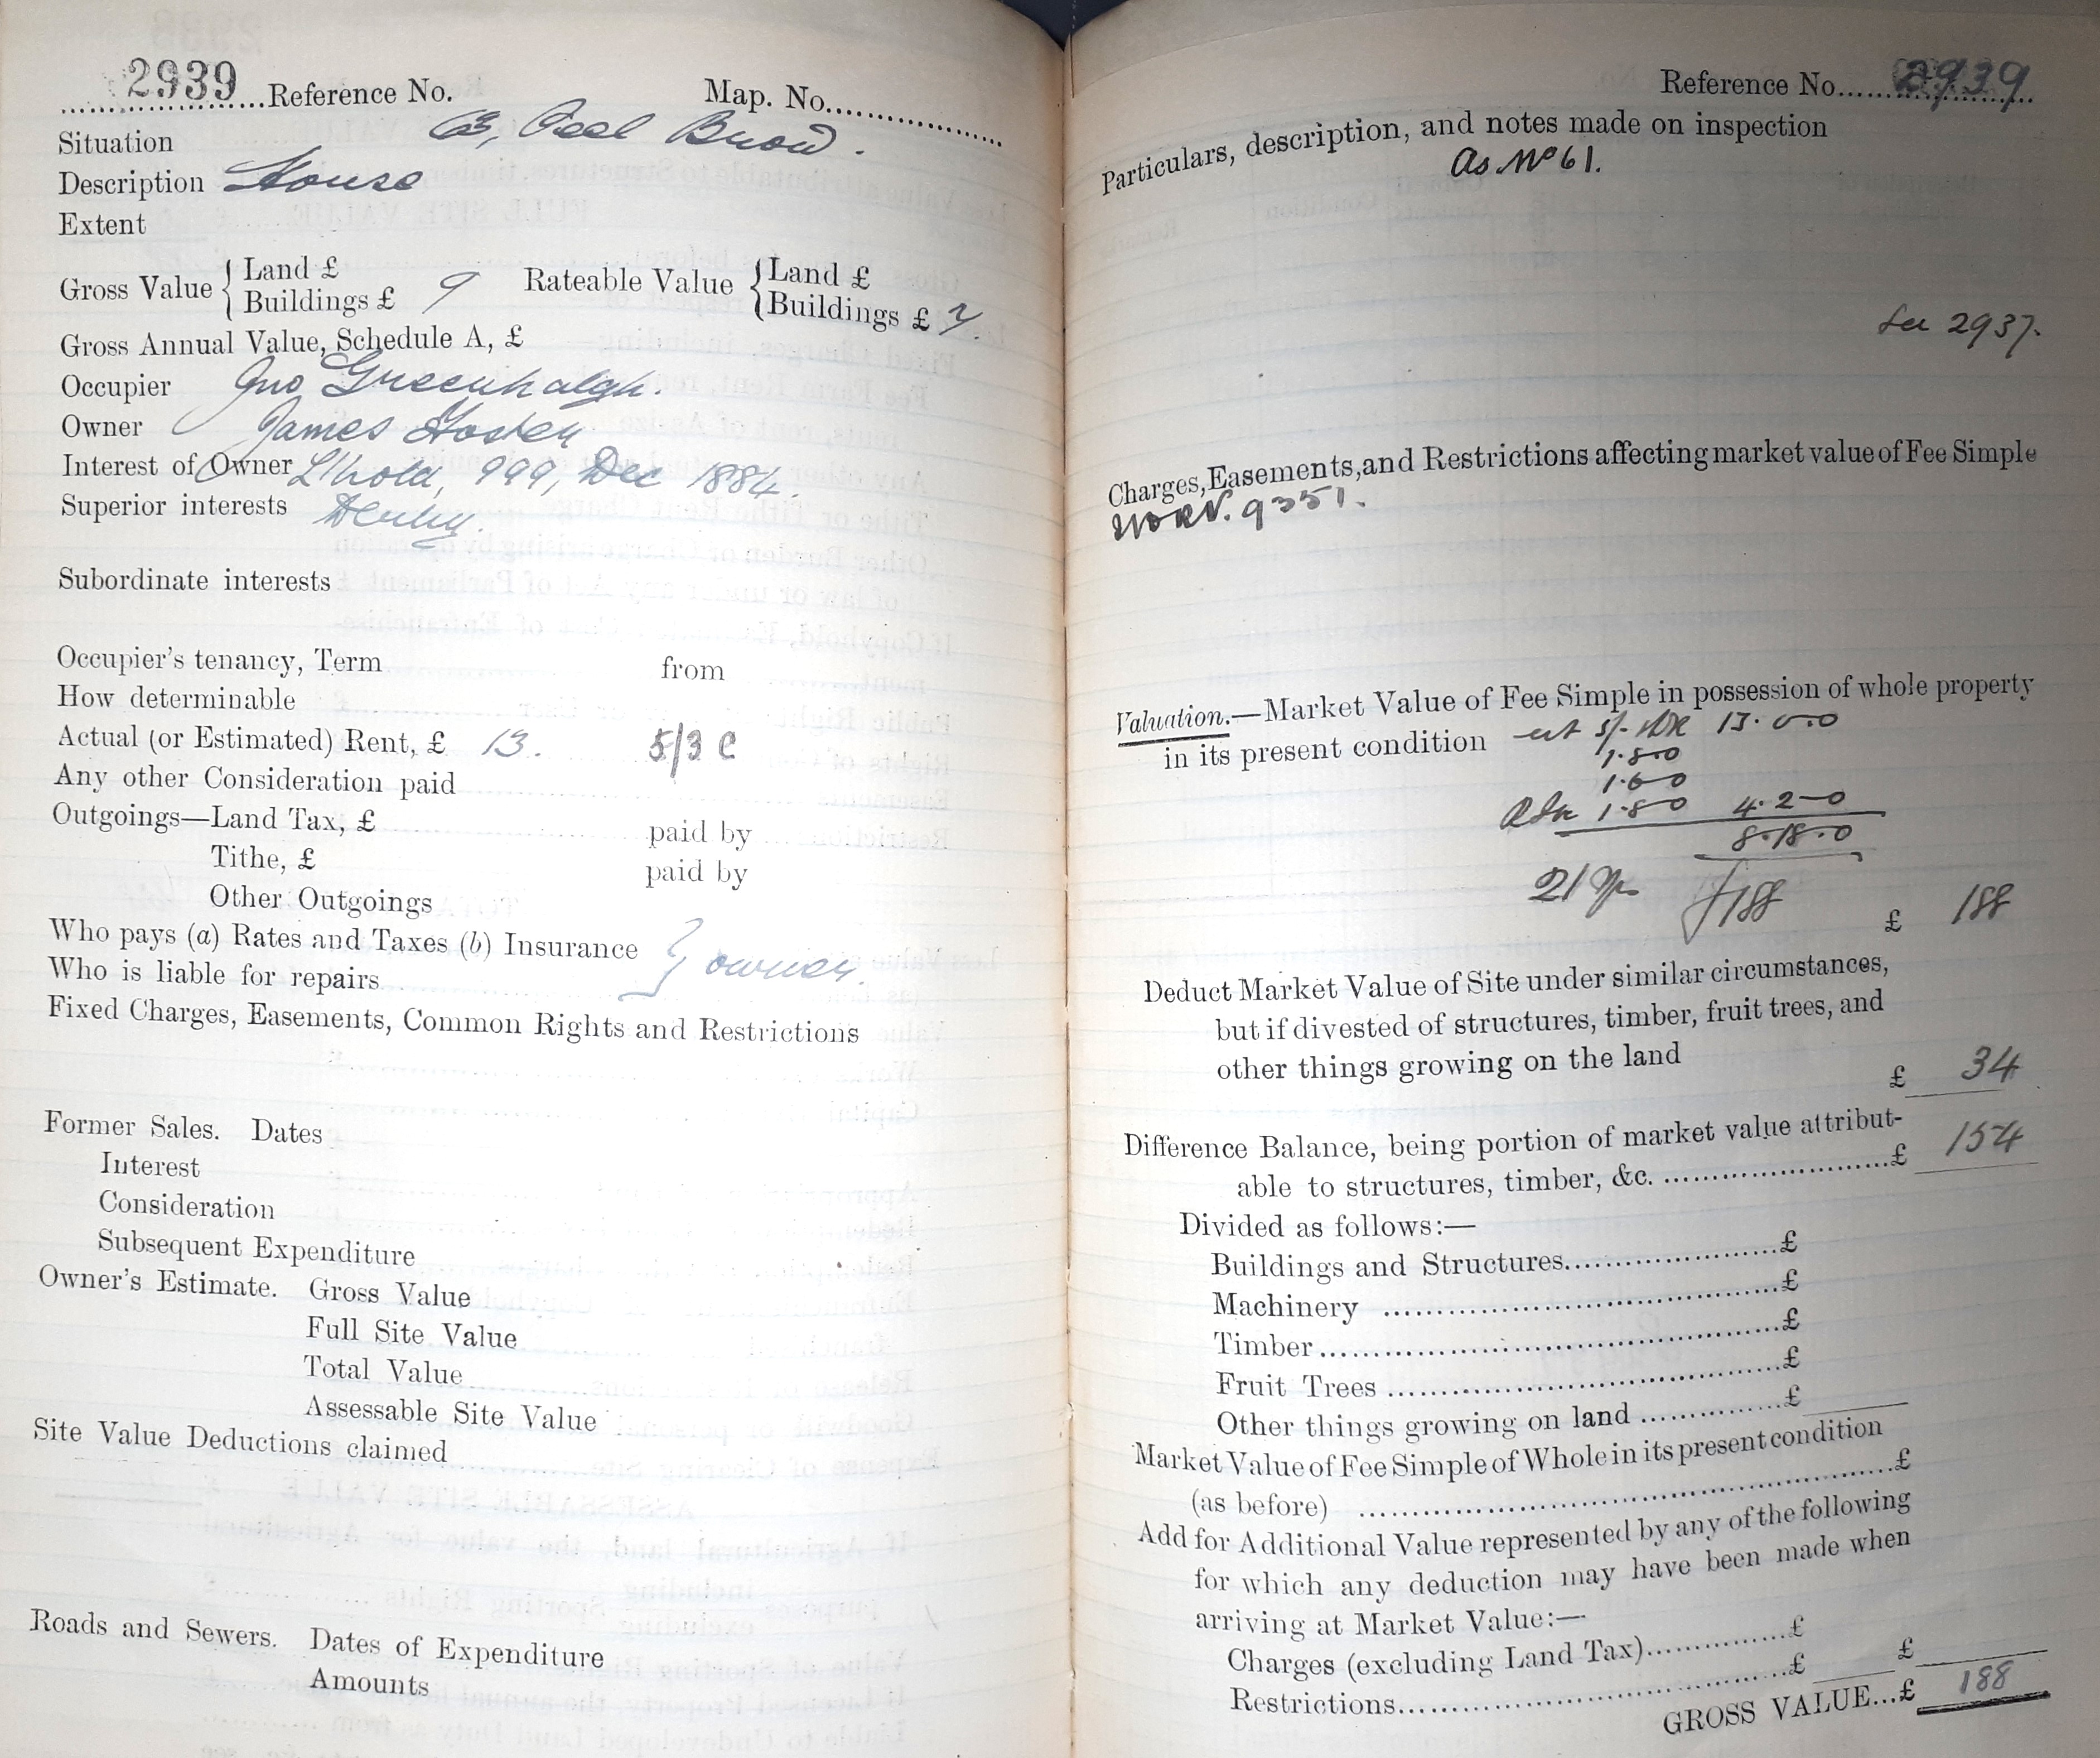 2939 Reference No. Map. No.
Situation 63, Peel Brow.
Description House
Extent
Gross Value { Land £ Rateable Value { Land £
Buildings £ 9 Buildings £ 7.
Gross Annual Value, Schedule A, £
Occupier Jno Greenhalgh.
Owner James
Interest of Owner L'hold, 999, Dec 1884.
Superior interests Derby.
Subordinate interests
Occupier's tenancy, Term from
How determinable
Actual (or Estimated) Rent, £ 13. 5/3 C
Any other Consideration paid
Outgoings—Land Tax, £ paid by
Tithe, £ paid by
Other Outgoings
Who pays (a) Rates and Taxes (b) Insurance } owner.
Who is liable for repairs
Fixed Charges, Easements, Common Rights and Restrictions
Former Sales. Dates
Interest
Consideration
Subsequent Expenditure
Owner's Estimate. Gross Value
Full Site Value
Total Value
Assessable Site Value
Site Value Deductions claimed
Roads and Sewers. Dates of Expenditure
Amounts
Reference No. 2939
Particulars, description, and notes made on inspection
As No 61.
See 2937.
Charges, Easements, and Restrictions affecting market value of Fee Simple
9351.
Valuation.—Market Value of Fee Simple in possession of whole property
in its present condition 5/- 13.0.0
1.8.0
1.6.0
1.8.0 4.2.0
8.18.0
21 Yp £188 £ 188
Deduct Market Value of Site under similar circumstances,
but if divested of structures, timber, fruit trees, and
other things growing on the land £ 34
Difference Balance, being portion of market value attribut-
able to structures, timber, &c. £ 154
Divided as follows:—
Buildings and Structures £
Machinery £
Timber £
Fruit Trees £
Other things growing on land £
Market Value of Fee Simple of Whole in its present condition
(as before) £
Add for Additional Value represented by any of the following
for which any deduction may have been made when
arriving at Market Value:—
Charges (excluding Land Tax) £
Restrictions £ £
GROSS VALUE...£ 188